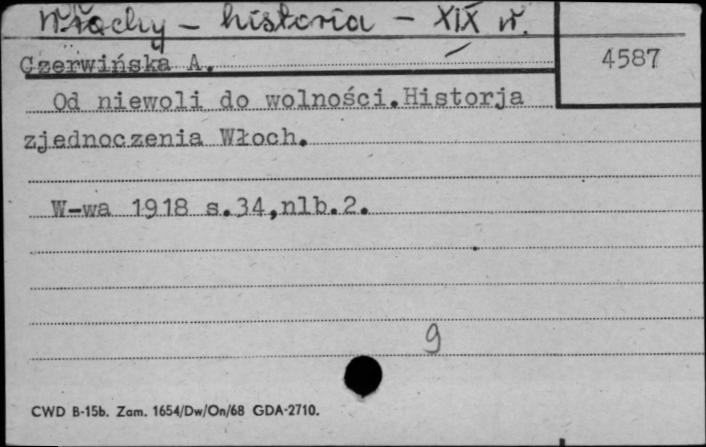 Włochy - historia - XIX w.
4587
Czerwińska A.
Od niewoli do wolności.Historja
zjednoczenia Włoch.
W-wa 1918 s.34,nlb.2.
9
CWD B-15b. Zam. 1654/Dw/On/68 GDA-2710.